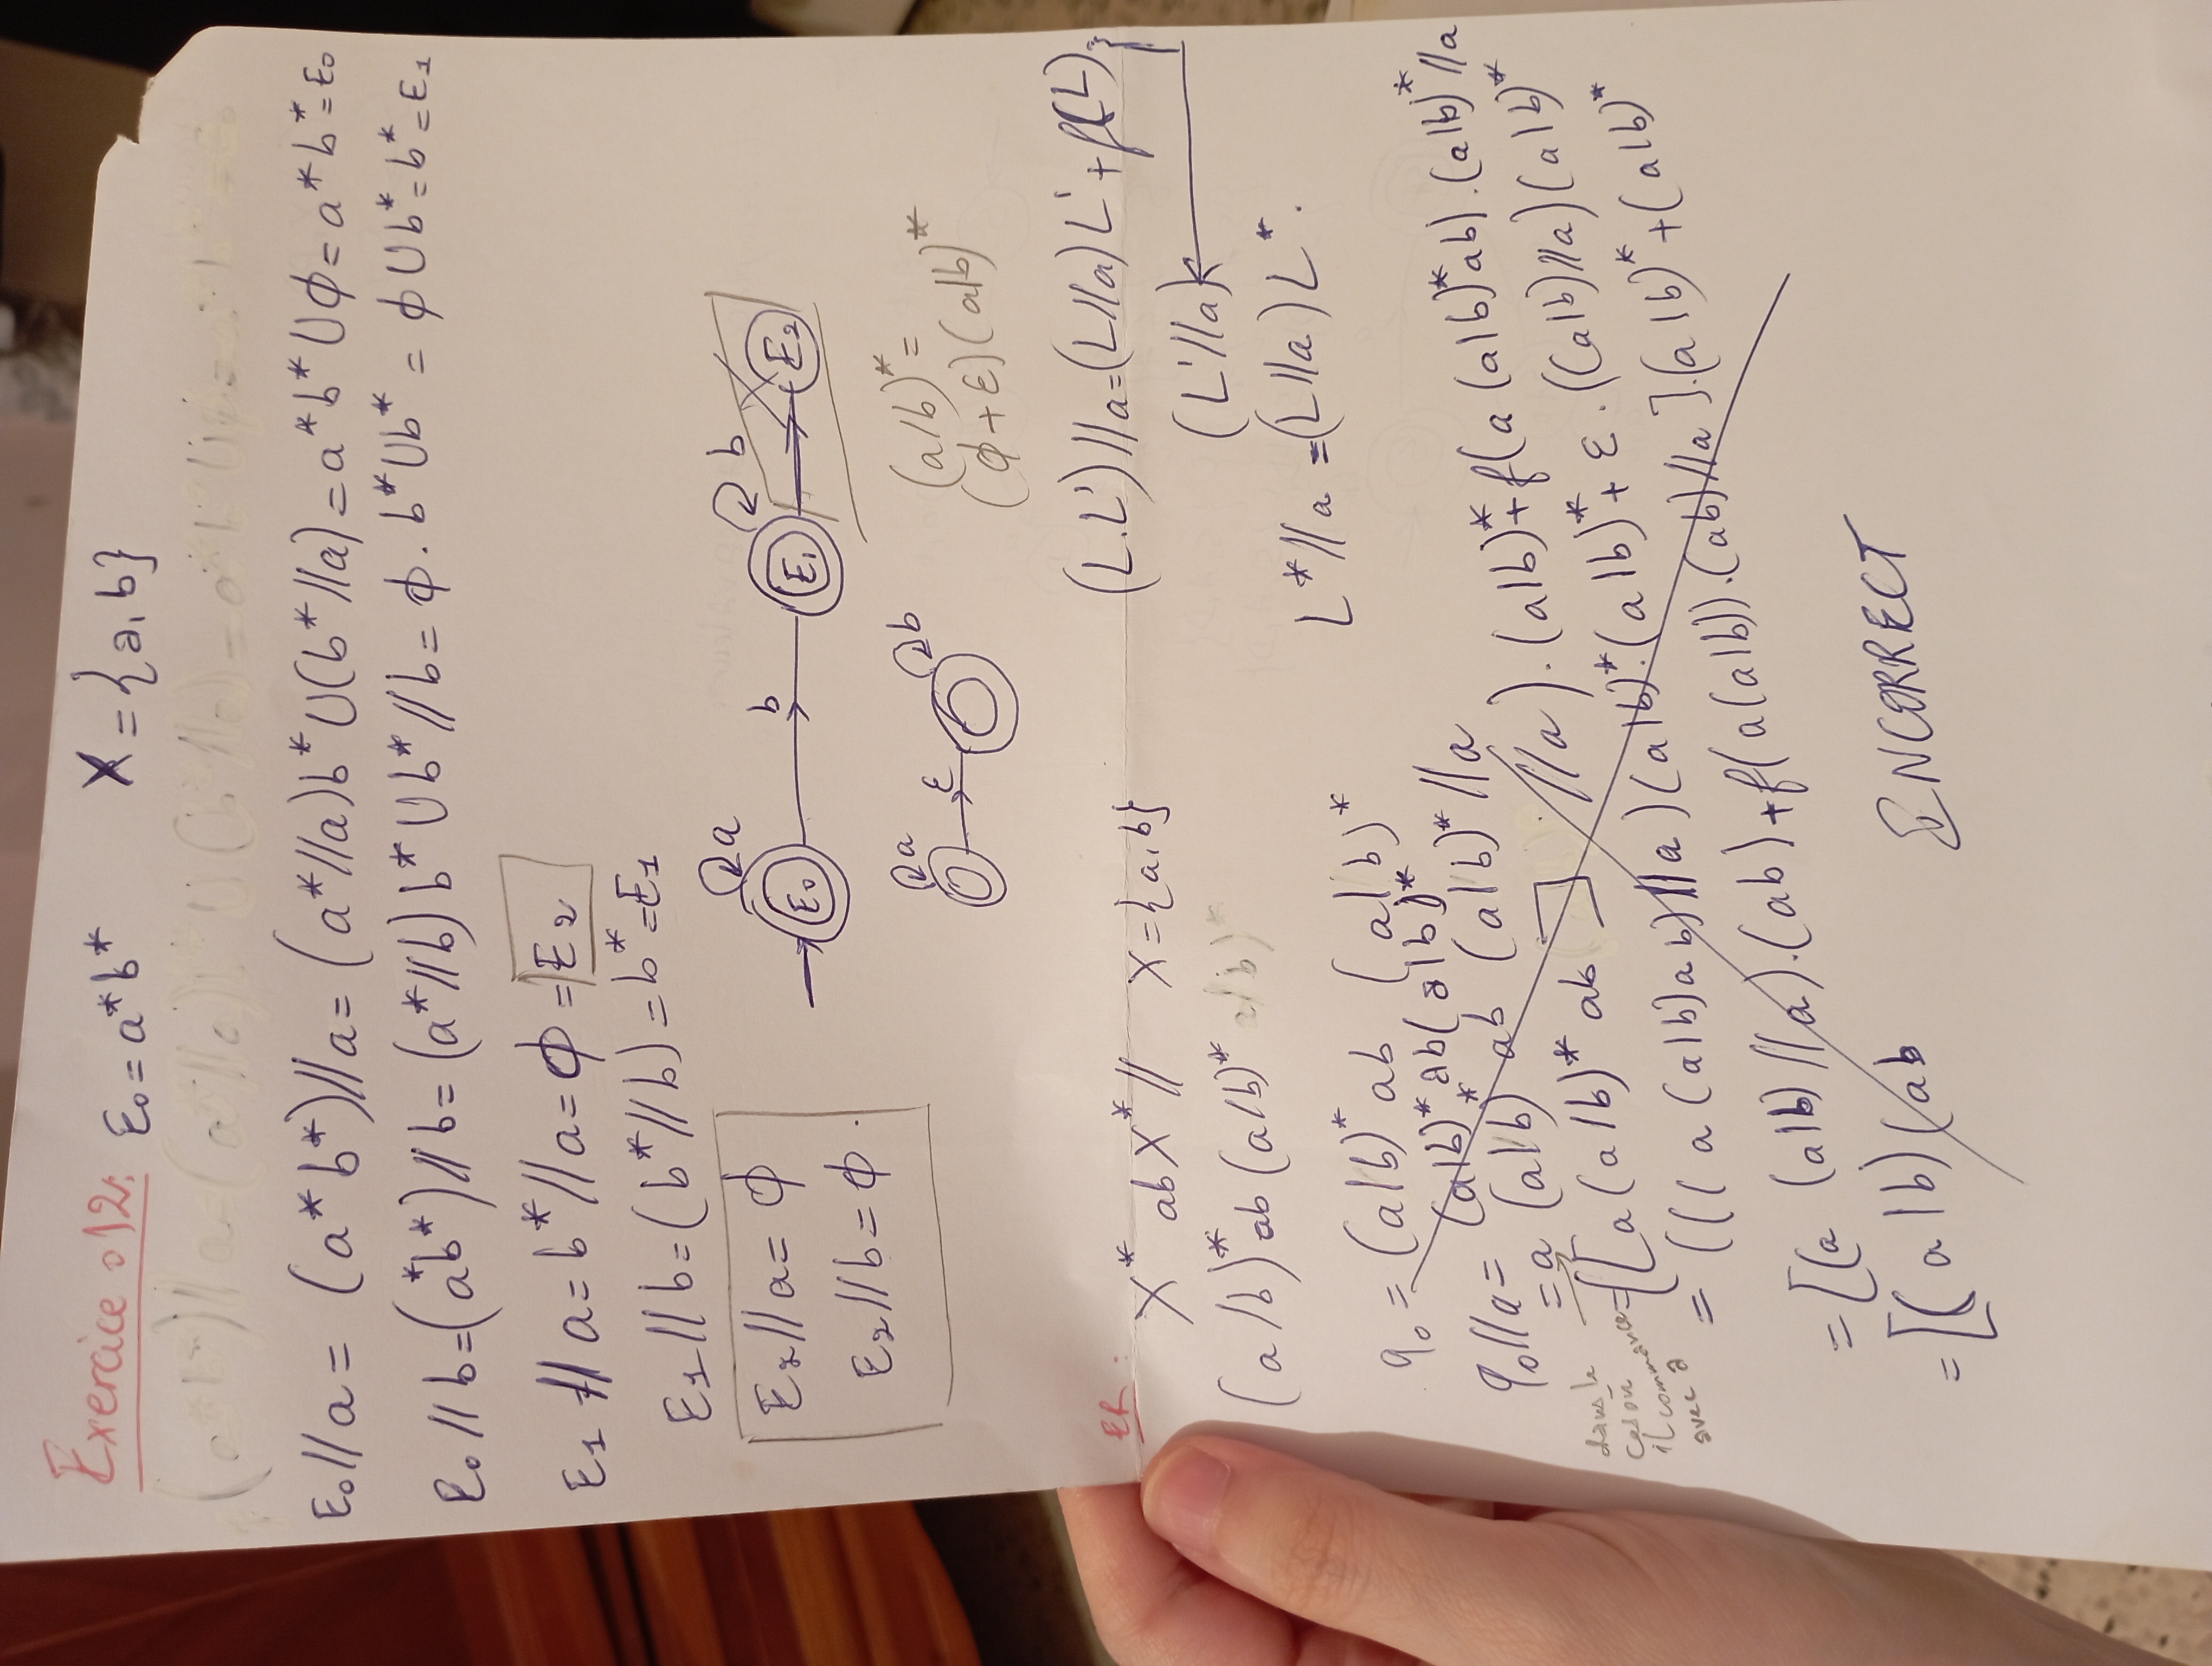 Exercice 012:
E₀ = a*b* X = {a, b}
E₀//a = (a*b*)//a = (a*//a)b* ∪ (b*//a) = a*b* ∪ ϕ = a*b* = E₀
E₀//b = (a*b*)//b = (a*//b) b* ∪ b*//b = ϕ. b* ∪ b* = ϕ ∪ b* = b* = E₁
E₁//a = b*//a = ϕ = E₂
E₁//b = (b*//b) = b* = E₁
E₂//a = ϕ
E₂//b = ϕ.
a b b
E₀ E₁ E₂
a ε b
(a/b)* =
(ϕ + ε)(a|b)*
(L.L')//a = (L//a) L' + f(L).
(L'//a)
L*//a = (L//a) L*.
ER :
X* abX* // X = {a, b}
(a/b)* ab (a/b)*
q₀ = (a|b)* ab (a|b)*
q₀//a = (a|b)* ab (a|b)*
= a (a|b)* ab (a|b)* //a
dans le
cas où
il commance
avec a
= ([a (a|b)* ab] //a) . (a|b)* + f(a (a|b)* ab) . (a|b)* //a
= (((a (a|b) ab) //a) (a|b)* . (a|b)* + ε . ((a|b)//a) (a|b)*
= [(a (a|b) //a) . (ab) + f(a(a|b)) . (ab) //a] . (a|b)* + (a|b)*
= [(a|b) (ab
INCORRECT